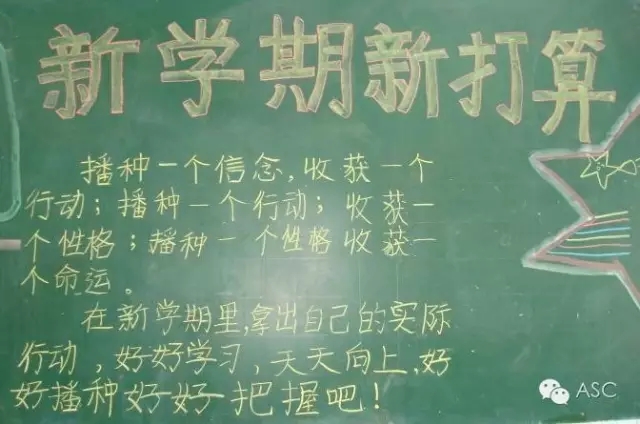 新学期新打算
播种一个信念,收获一个
行动;播种一个行动;收获一
个性格;播种一个性格收获一
个命运。
在新学期里,拿出自己的实际
行动,好好学习,天天向上,好
好播种好好把握吧!
ASC